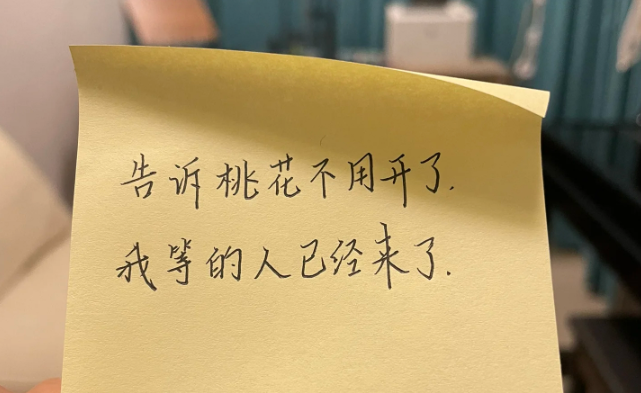 告诉桃花不用开了.
我等的人已经来了.